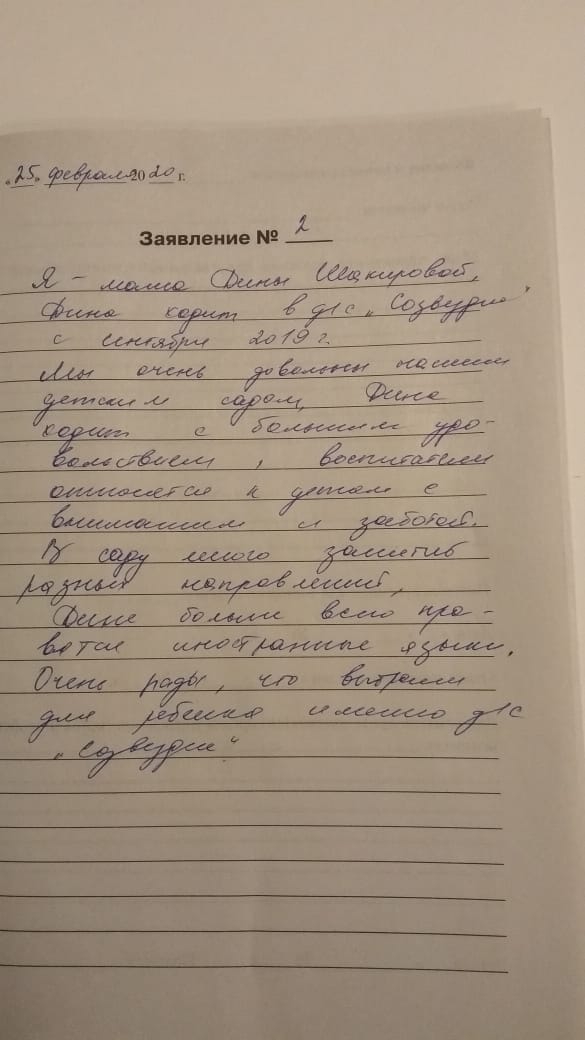 "25" февраля 2020 г.
Заявление № 2
Я - мама Дины Шакировой,
Дина ходит в д/с "Созвездие"
с сентября 2019 г.
Мы очень довольны нашим
детским садом, Дина
ходит с большим удо-
вольствием, воспитатели
относятся к детям с
вниманием и заботой.
В саду много занятий
разных направлений,
Дине больше всего нра-
вятся иностранные языки.
Очень рады, что выбрали
для ребенка именно д/с
"Созвездие"